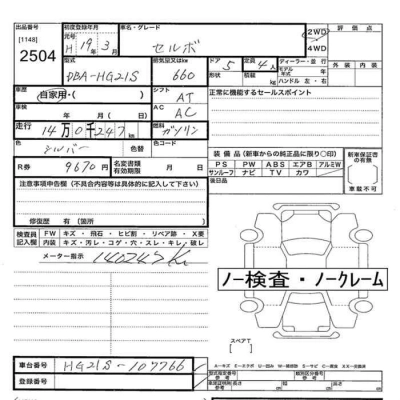 出品番号 初度登録年月 車名・グレード 評価点
[1148] 元号 H 19 年 3 月 セルボ 2WD 4WD
2504
型式 排気量又はkw ドア 定員 ディーラー・並行 外装 内装
DBA-HG21S 660 5 形状 4 積載 kg モデル年式 年
ハンドル 左・右
車歴 シフト 正常に機能するセールスポイント
自家用・( ) AT
車検 AC
年 月 日 AC
走行 燃料
14万0千247km ガソリン
色 色替 色コード
シルバー
装備品(新車からの純正品に限り○印) 新車保証書の有無
R券 9670円 名変書類有効期限 月 日 PS PW ABS エアB アルミW
サンルーフ ナビ TV カワ 有・無
注意事項申告欄(不具合内容等は具体的に記入して下さい) 後日品 車載不可
修復歴 有 (箇所 )
検査員記入欄 FW キズ・飛石・ヒビ割・リペア跡・X要
内装 キズ・汚レ・コゲ・穴・スレ・キレ・破レ
メーター指示 140247K
ノー検査・ノークレーム
スペアT [ ]
車台番号 HG21S-107766
登録番号
型式指定番号 類別区分番号